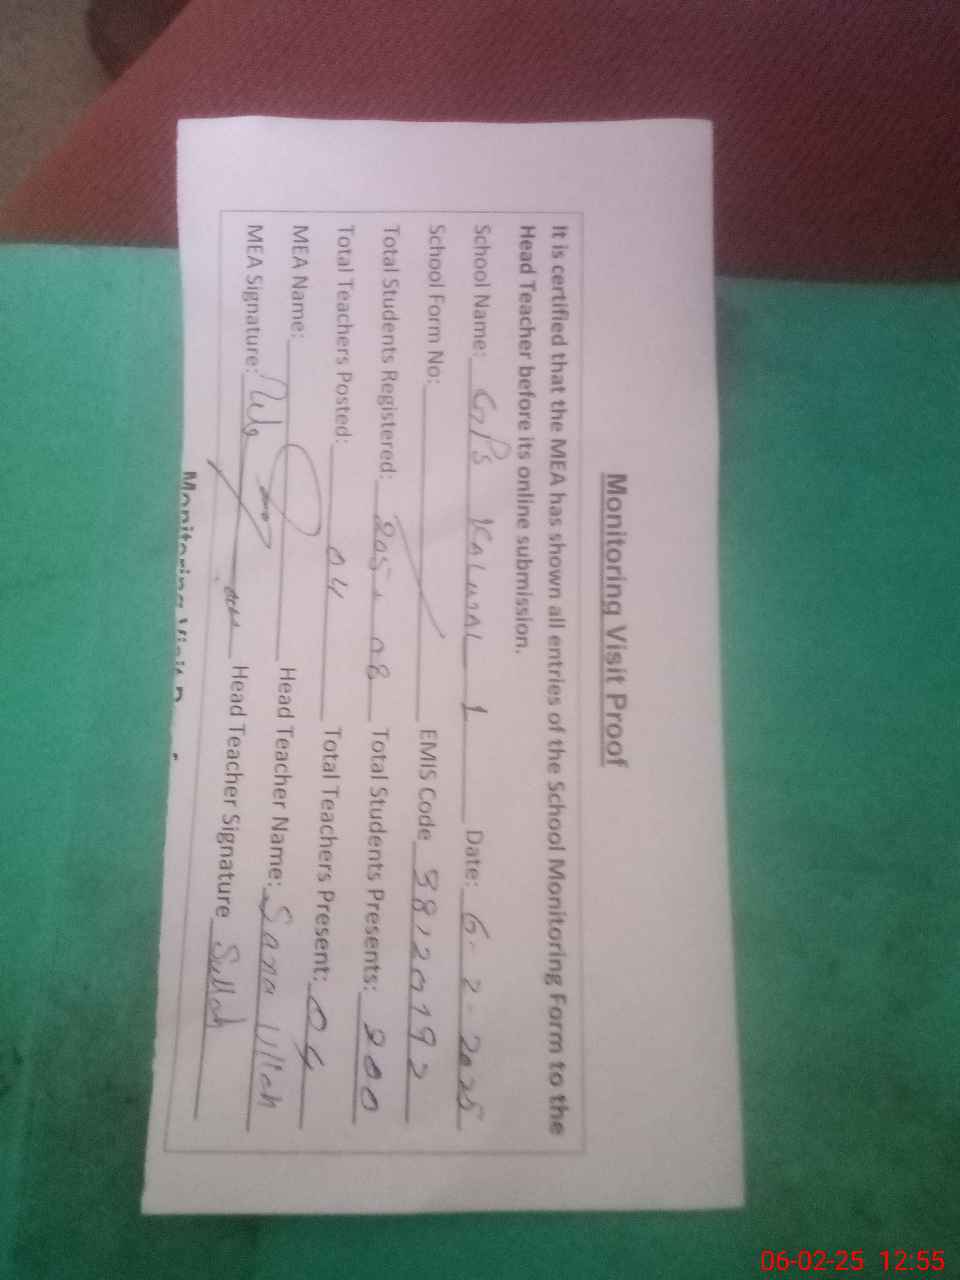 Monitoring Visit Proof
It is certified that the MEA has shown all entries of the School Monitoring Form to the
Head Teacher before its online submission.
School Name: GPS 1 Date: 6-2-2025
School Form No: EMIS Code
Total Students Registered: 205 + 08 Total Students Presents: 200
Total Teachers Posted: 04 Total Teachers Present: 04
MEA Name: Head Teacher Name: Sana Ullah
MEA Signature: Head Teacher Signature Sullah
Monitoring Visit
06-02-25 12:55